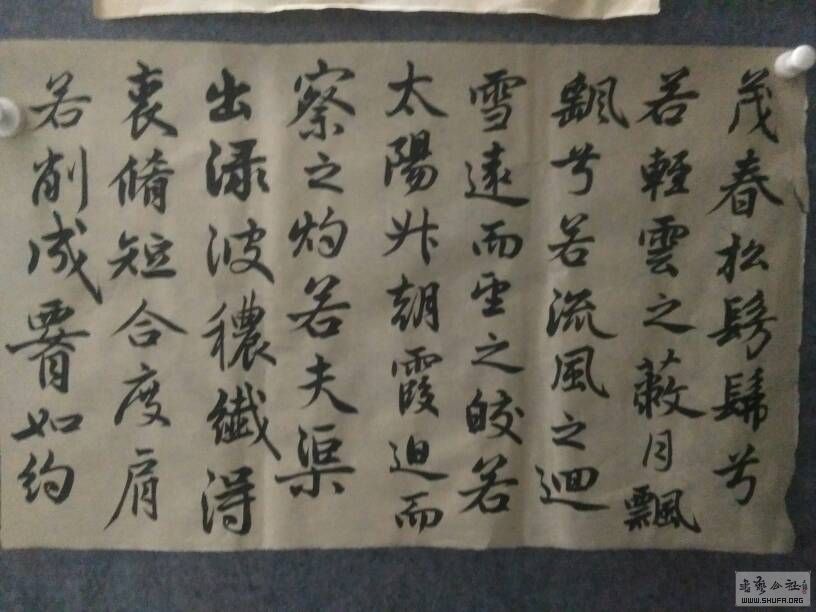 茂春松髣髴兮
若輕雲之蔽月飄
颻兮若流風之迴
雪遠而望之皎若
太陽升朝霞迫而
察之灼若夫渠
出渌波穠纖得
衷脩短合度肩
若削成腰如約
书艺公社
WWW.SHUFA.ORG